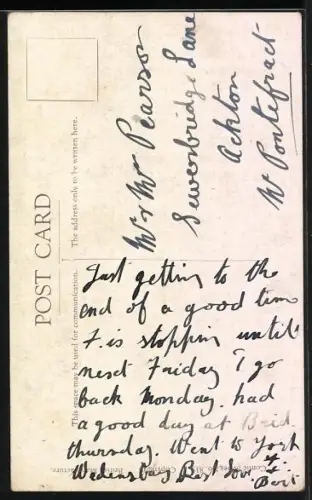 POST CARD
This space may be used for communication.
The address only to be written here.
Mr & Mrs Pearson
Sewerbridge Lane
Ackton
Nr Pontefract
Just getting to the
end of a good time
F. is stopping until
next Friday I go
back Monday. had
a good day at Brid.
thursday. Went to York
Wedensday Best love
Bert